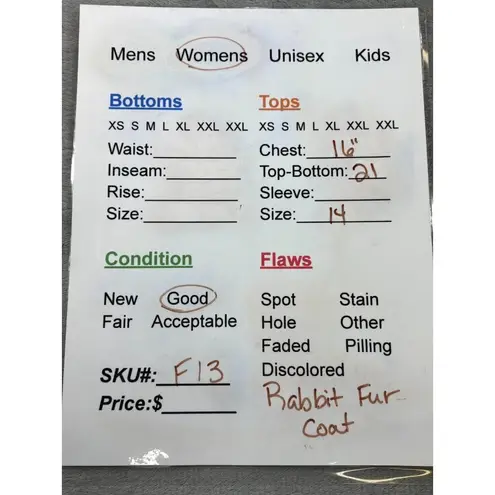 Mens Womens Unisex Kids
Bottoms Tops
XS S M L XL XXL XXL XS S M L XL XXL XXL
Waist: Chest: 16"
Inseam: Top-Bottom: 21
Rise: Sleeve:
Size: Size: 14
Condition Flaws
New Good Spot Stain
Fair Acceptable Hole Other
Faded Pilling
SKU#: F13 Discolored
Price:$ Rabbit Fur
Coat